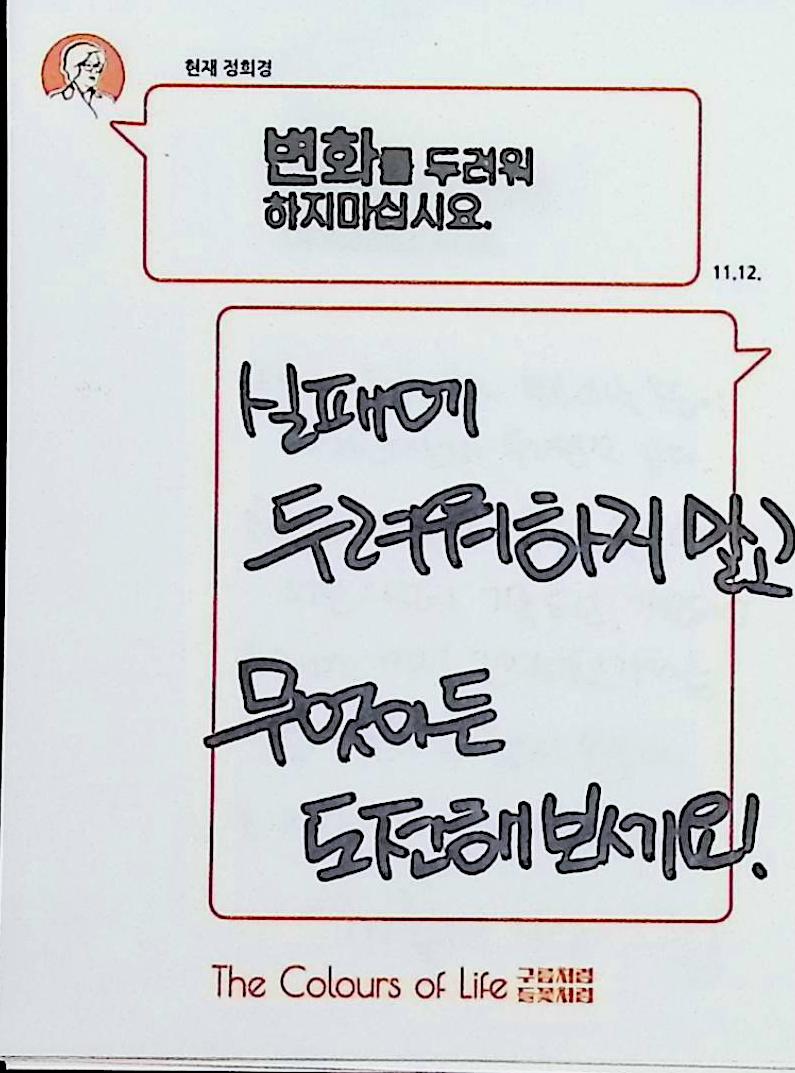 현재 정희경
변화를 두려워
하지마십시요.
11.12.
실패에
두려워하지 말고
무엇이든
도전해 보세요!
The Colours of Life 구름처럼
들꽃처럼